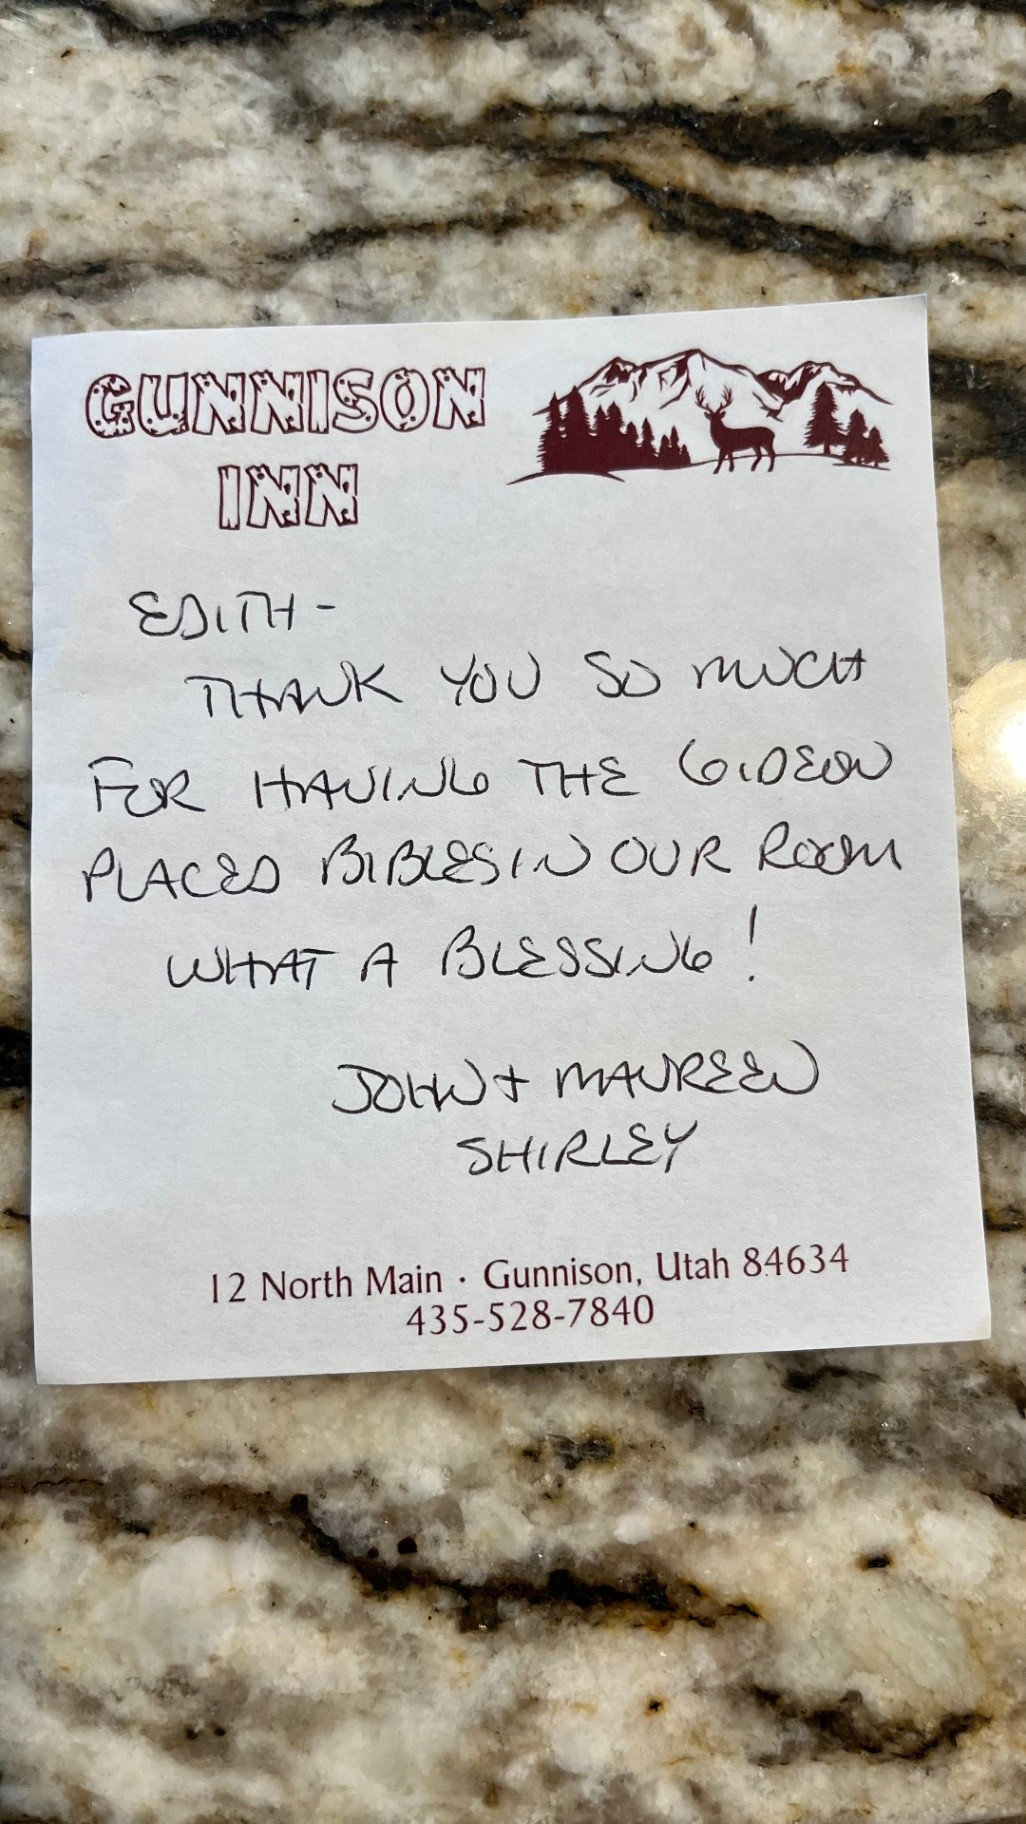 GUNNISON
INN
EDITH -
THANK YOU SO MUCH
FOR HAVING THE GIDEON
PLACED BIBLES IN OUR ROOM
WHAT A BLESSING!
JOHN + MAUREEN
SHIRLEY
12 North Main · Gunnison, Utah 84634
435-528-7840